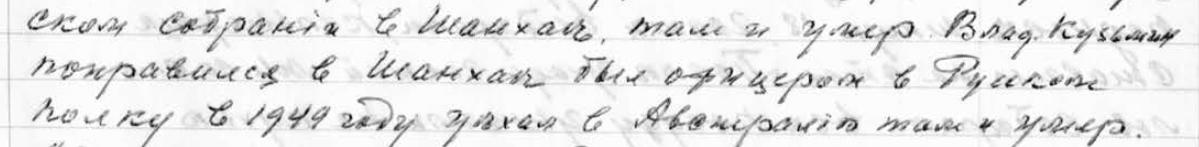 ском собранiи в Шанхаѣ, там и умер. Влад. Кузьмин
поправился в Шанхаѣ был офицером в Руском
полку в 1949 году уѣхал в Австралiю там и умер.